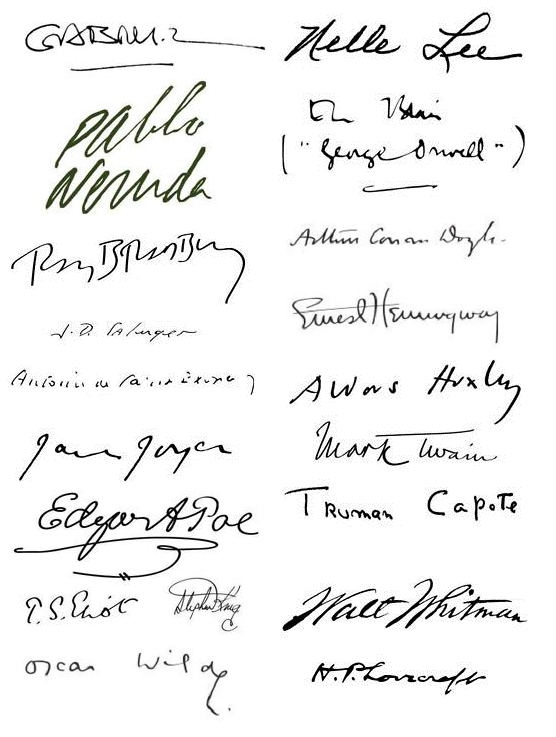 Nelle Lee
Pablo
Neruda
Eric Blair
("George Orwell")
Ray Bradbury
Arthur Conan Doyle.
J. D. Salinger
Ernest Hemingway
Antoine de Saint Exupéry
Aldous Huxley
James Joyce
Mark Twain
Edgar A Poe
Truman Capote
T. S. Eliot
Stephen King
Walt Whitman
Oscar Wilde
H. P. Lovecraft